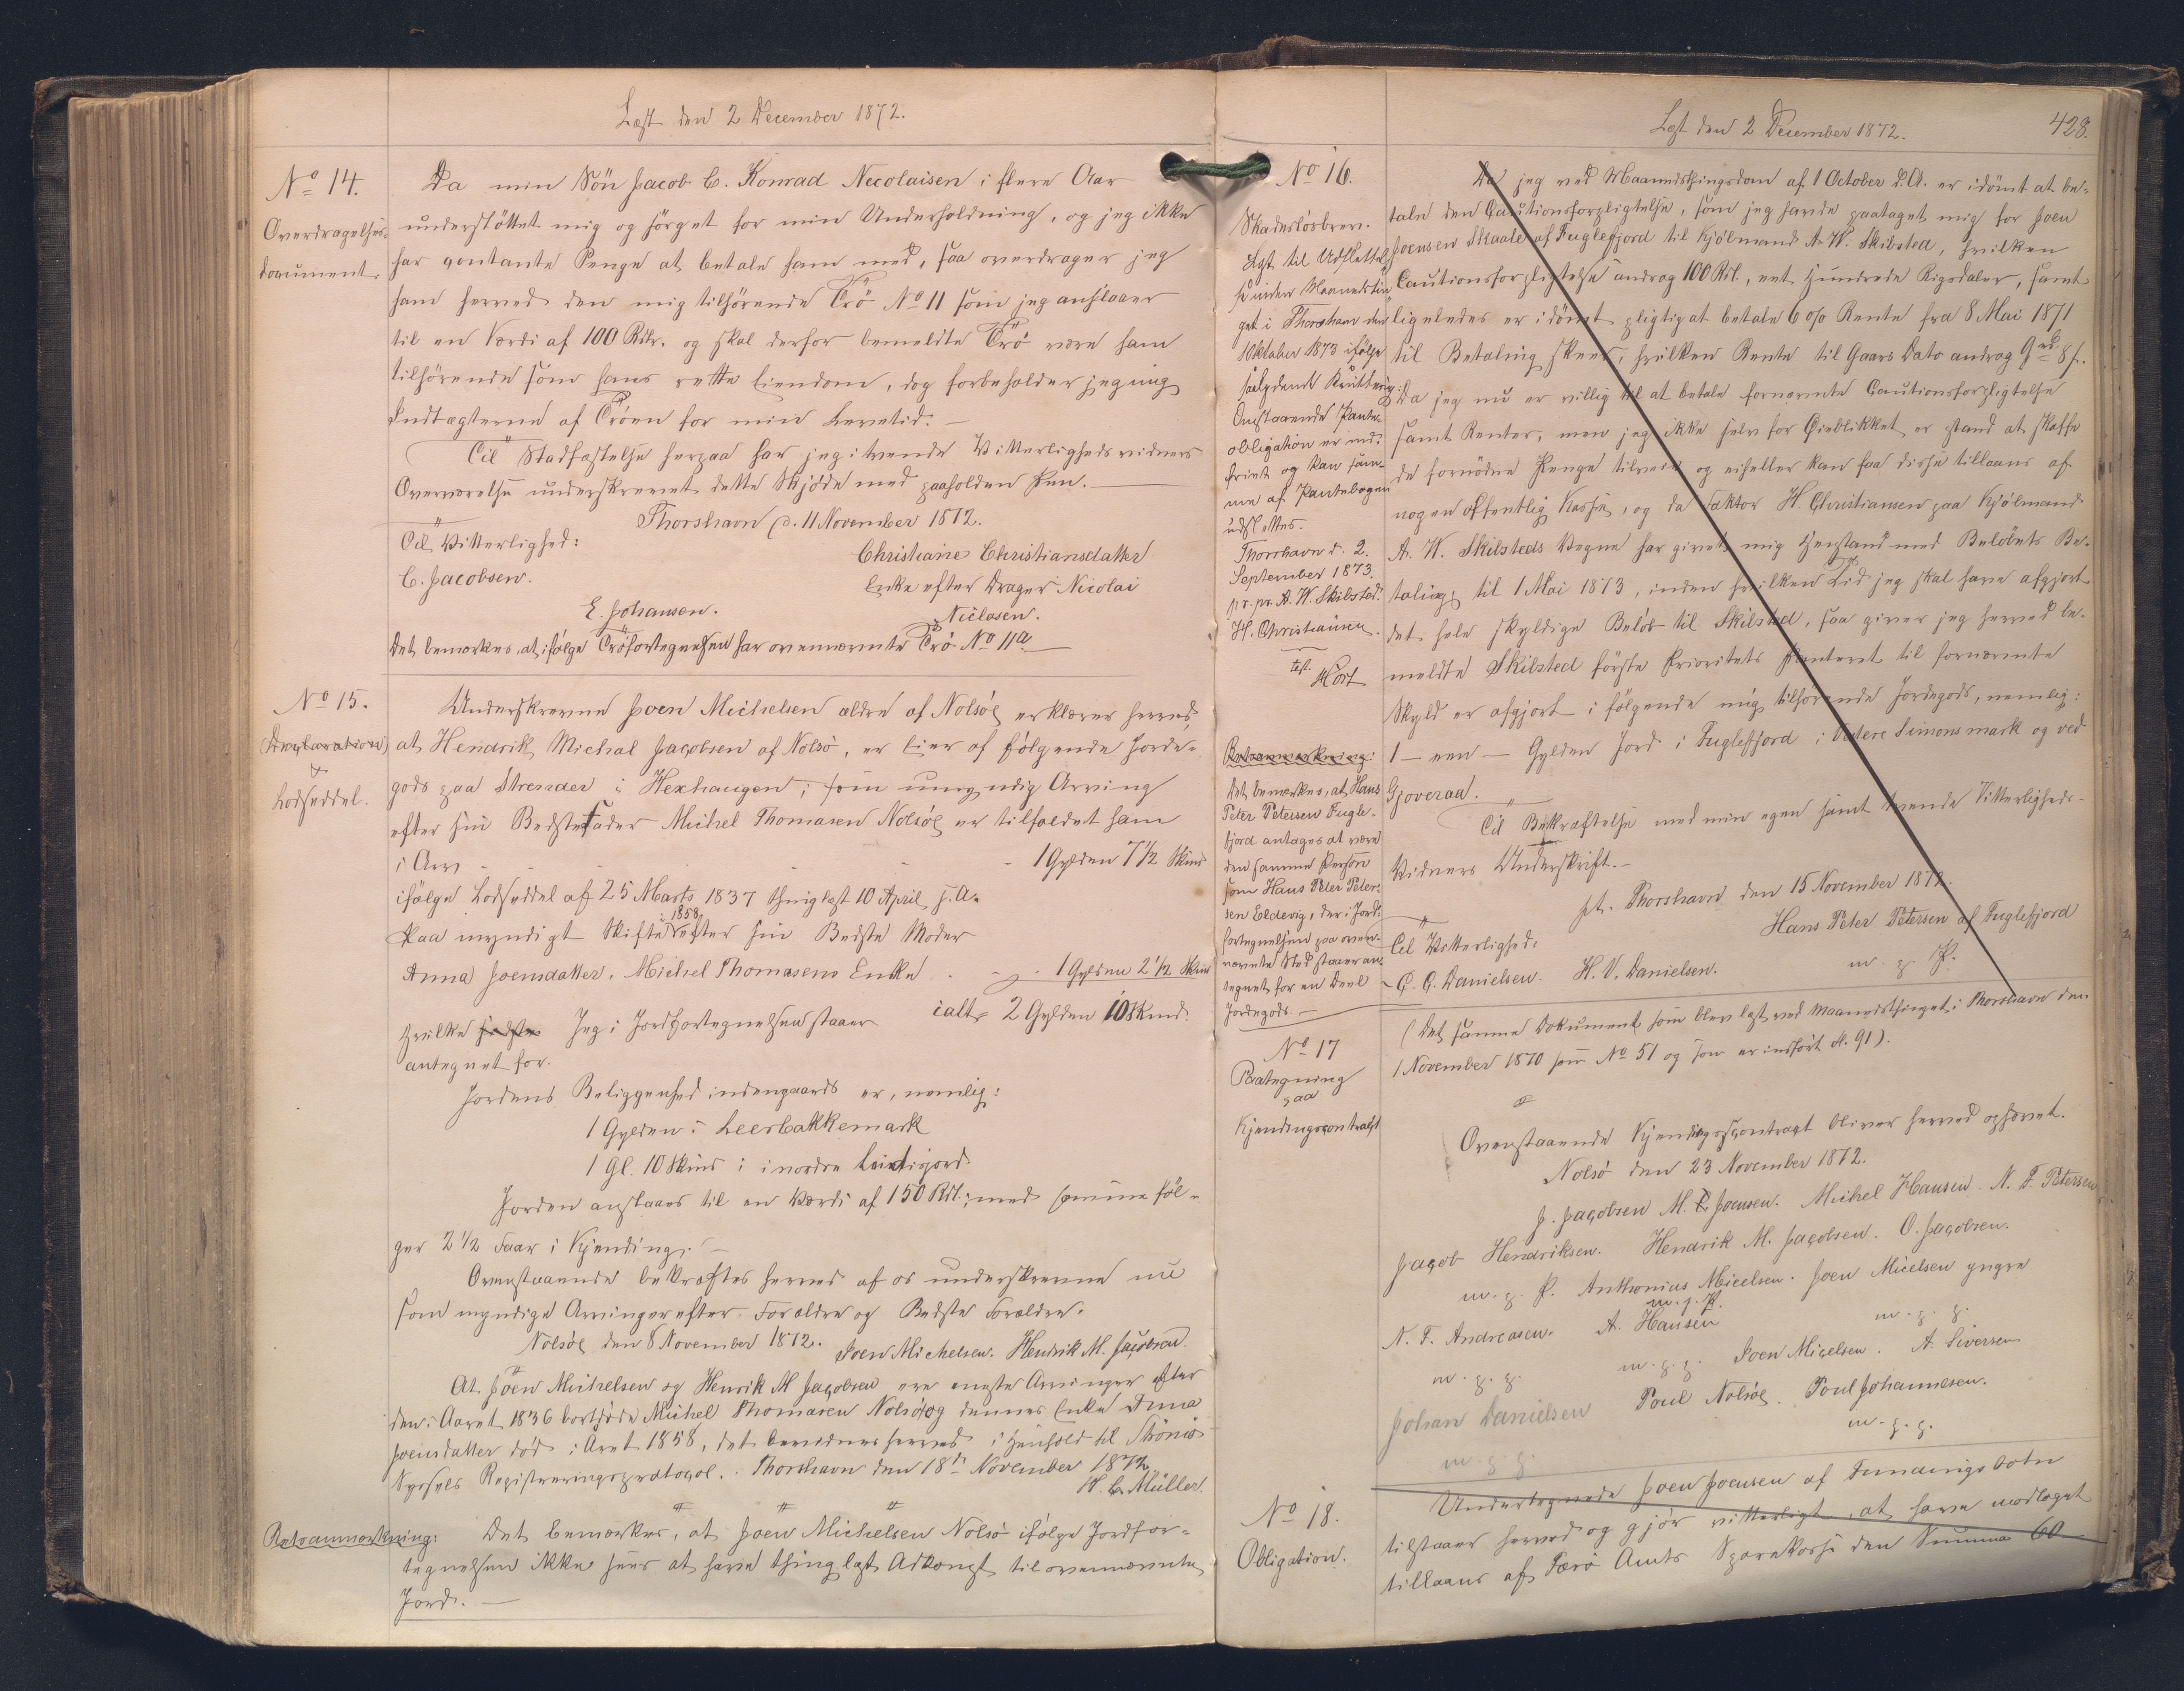 Læst den 2 December 1872.
No 14.
Overdragelses-
document.
Da min Sön Jacob C. Konrad Nicolaisen i flere Aar
understöttet mig og sörget for min Underholdning, og jeg ikke
har contante Penge at betale ham med, saa overdrager jeg
ham herved den mig tilhörende Trö No 11 som jeg anslaaer
til en Værdi af 100 Rdlr. og skal derfor bemeldte Trö være ham
tilhörende som hans rette Eiendom, dog forbeholder jeg mig
Indtægterne af Tröen for min Levetid. —
Til Stadfæstelse herpaa har jeg i tvende Vitterligheds vidners
Overværelse underskrevet dette Skjöde med paaholden Pen. —
Thorshavn d. 11 November 1872.
Til Vitterlighed:
Christiane Christiansdatter
C. Jacobsen.
Enke efter Drager Nicolai
E. Johansen.
Niclasen.
Det bemærkes, at ifölge Tröfortegnelsen har ovennævnte Trö No 11a
No 15.
Declaration
Lodseddel.
Underskrevne Joen Michelsen ældre af Nolsöe erklærer herved,
at Hendrik Michal Jacobsen af Nolsö, er Eier af følgende Jorde-
gods paa Strender i Hexhaugen, som umyndig Arving
efter sin Bedstefader Michel Thomasen Nolsöe er tilfaldet ham
i Arv - - - 1 Gylden 7 1/2 Skind
ifölge Lodseddel af 25 Marts 1837 thinglæst 10 April s. A.
Paa myndigt Skifte i 1858 efter sin Bedste Moder
Anna Joensdatter, Michel Thomasens Enke - - 1 Gylden 2 1/2 Skind
ialt 2 Gylden 10 Skind.
Hvilke Jeg i Jordfortegnelsen staaer
antegnet for.
Jordens Beliggenhed indengaards er, nemlig:
1 Gylden i Leerbakkemark
1 Gl. 10 Skind i nordre
Jorden anslaaes til en Værdi af 150 Rdl.; med samme föl-
ger 2 1/2 Faar i Kjending. —
Ovenstaaende bekræftes herved af os underskrevne nu
som myndige Arvinger efter Forældre og Bedste Forældre.
Nolsöe den 8 November 1872. Joen Michelsen. Hendrik M. Jacobsen.
At Joen Michelsen og Henrik M Jacobsen ere eneste Arvinger efter
den i Aaret 1836 bortdöde Michel Thomasen Nolsöe og dennes Enke Anna
Joensdatter död i Aaret 1858, det bevidnes herved i Henhold til Strömö
Syssels Registreringsprotocol. Thorshavn den 18de November 1872
H. C. Müller.
Retsanmærkning:
Det bemærkes, at Joen Michelsen Nolsö ifölge Jordfor-
tegnelsen ikke sees at have thinglæst Adkomst til ovennævnte
Jord. —
Læst den 2 December 1872.
428.
No 16.
Skadeslösbrev.
Læst til Udslettelse
inden Maanedsthin-
get i Thorshavn den
1 Oktober 1873 ifölge
saalydende Kvittering:
Omstaaende Pante-
obligation er ind-
friet og kan sam-
me af Pantebogen
udslettes.
Thorshavn d. 2.
September 1873.
pr. pr. A. W. Skibsted.
H. Christiansen.
Da jeg ved Maanedsthingsdom af 1 October d. A. er idömt at be-
tale den Cautionsforpligtelse, som jeg havde paataget mig for Joen
Joensen Skaale af Fuglefjord til Kjölmand A. W. Skibsted, hvilken
Cautionsforpligtelse androg 100 Rdl., eet Hundrede Rigsdaler, samt
ligeledes er idömt pligtig at betale 6 o/o Rente fra 8 Mai 1871
til Betaling skeer, hvilken Rente til Gaars Dato androg 9 rd 8 s.
Da jeg nu er villig til at betale fornævnte Cautionsforpligtelse
samt Renter, men jeg ikke selv for Öieblikket er istand at skaffe
de fornödne Penge tilveie og eiheller kan faa disse tillaans af
nogen offentlig Kasse, og da Faktor H. Christiansen paa Kjölmand
A. W. Skibsteds Vegne har givet mig Henstand med Belöbets Be-
taling til 1 Mai 1873, inden hvilken Tid jeg skal have afgjort
det hele skyldige Belöb til Skibsted, saa giver jeg herved be-
meldte Skibsted förste Prioritets Panteret til fornævnte
Skyld er afgjort i fölgende mig tilhörende Jordegods, nemlig:
1 — een — Gylden Jord i Fuglefjord i Vestere Simonsmark og ved
Gjoveraa.
Til Bekræftelse med min egen samt tvende Vitterligheds-
Vidners Underskrift. —
pt. Thorshavn den 15 November 1872.
Hans Peter Petersen af Fuglefjord
m. p. P.
Til Vitterlighed:
C. C. Danielsen. H. V. Danielsen.
Retsanmærkning:
Det bemærkes, at Hans
Peter Petersen Fugle-
fjord antages at være
den samme Person
som Hans Peter Peter-
sen Eldevig, der i Jord-
fortegnelsen paa oven-
nævnte Sted staaer an-
tegnet for en Deel
Jordegods. —
No 17
Paategning
paa
Kjendingscontract
(Det samme Dokument som blev læst ved Maanedsthinget i Thorshavn den
1 November 1870 som No 51 og som er indfört fl. 91).
Ovenstaaende Kjendingscontract bliver herved ophævet.
Nolsö den 23 November 1872.
J. Jacobsen M. Joensen. Michel Hansen. N. F. Petersen
Jacob Hendriksen. Hendrik M. Jacobsen. O. Jacobsen.
m. p. P. Anthonius Micelsen. Joen Micelsen yngre
m. p. P.
N. F. Andreasen. A. Hansen m. p. p.
m. p. p. m. p. p. Joen Micelsen. A. Siversen
Johan Danielsen Poul Nolsöe. Poul Johannesen.
m. p. p. m. p. p.
No 18.
Obligation.
Undertegnede Joen Joensen af Fundingsbotn
tilstaaer herved og gjör vitterligt, at have modtaget
tillaans af Færö Amts Sparekasse den Summa 60